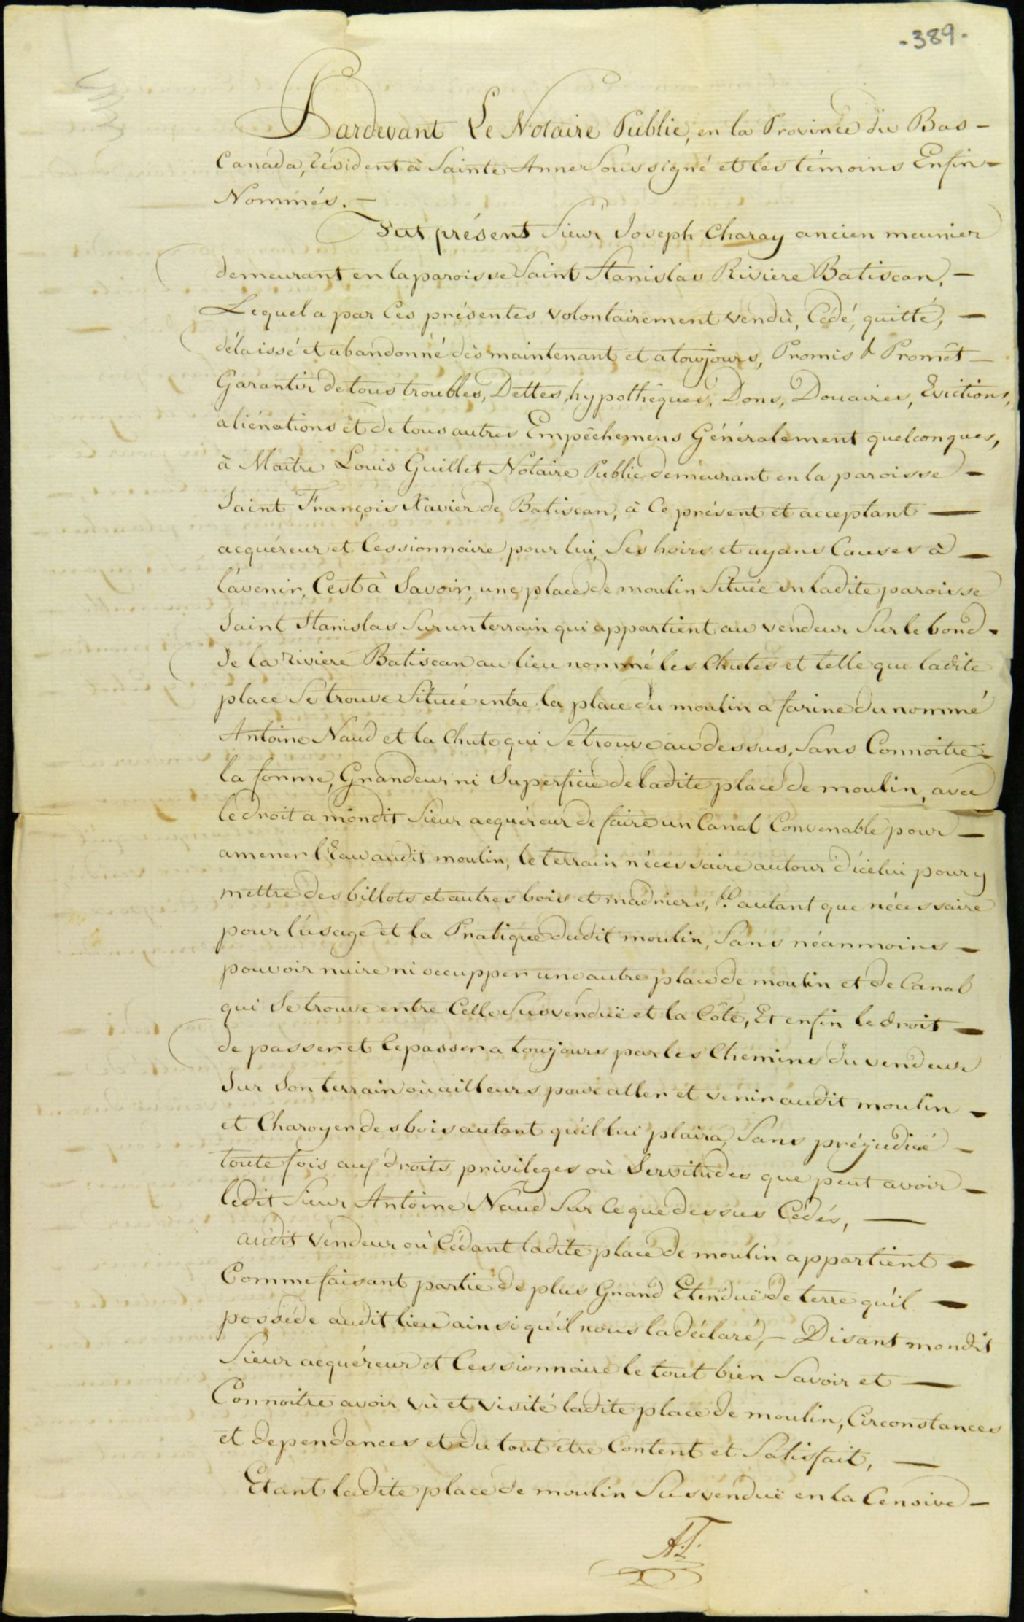 -389-
Pardevant Le Notaire Public, en la Province du Bas-
Canada, Résident à Sainte Anne Soussigné et les témoins Enfin-
Nommés. —
Fut présent Sieur Joseph Charay ancien meunier
demeurant en la paroisse Saint Stanislas Riviere Batiscan, —
Lequel a par Ces présentes volontairement vendu, Cédé, quitté, —
délaissé et abandonné dès maintenant et a toujours, Promis & Promêt —
Garantir de tous troubles, Dettes, hypothéques, Dons, Douaires, Evictions,
aliénations et de tous autres Empêchemens Généralement quelconques,
à Maître Louis Guillet Notaire Public demeurant en la paroisse —
Saint François Xavier de Batiscan, à Ce présent et acceptant —
acquéreur et Cessionnaire pour lui, Ses hoirs et ayans Causes à —
l'avenir, C'est à Savoir, une place de moulin Située en ladite paroisse
Saint Stanislas Sur un terrain qui appartient au vendeur Sur le bord -
de la riviere Batiscan au lieu nommé les Chutes et telle que ladite
place Se trouve Située entre la place du moulin a farine du nommé
Antoine Naud et la Chute qui Se trouve au dessus, Sans Connoitre
la forme, Grandeur ni Superficie de ladite place de moulin, avec
le droit a mondit Sieur acquéreur de faire un Canal Convenable pour —
amener l'Eau audit moulin, le terrain nécessaire autour d'icelui pour y
mettre des billots et autres bois et madriers, & autant que nécessaire
pour l'usage et la Pratique dudit moulin, Sans néanmoins —
pouvoir nuire ni occupper une autre place de moulin et de Canal
qui Se trouve entre Celle Susvenduë et la Côte, Et enfin le droit —
de passer et Repasser a toujours par les Chemins du vendeur
Sur Son terrain où ailleurs pour aller et venir audit moulin —
et Charoyer des bois autant qu'il lui plaira, Sans préjudice —
toute fois aux droits, privileges où Servitudes que peut avoir —
ledit Sieur Antoine Naud Sur Ce que dessus Cédés, —
audit vendeur où Cédant ladite place de moulin appartient —
Comme faisant partie de plus Grand Etenduë de terre qu'il —
posséde audit lieu ainsi qu'il nous la déclaré, — Disant mondit
Sieur acquéreur et Cessionnaire le tout bien Savoir et —
Connoitre avoir vù et visité ladite place de moulin, Circonstances
et dependances et du tout être Content et Satisfait, —
Etant ladite place de moulin Susvenduë en la Censive —